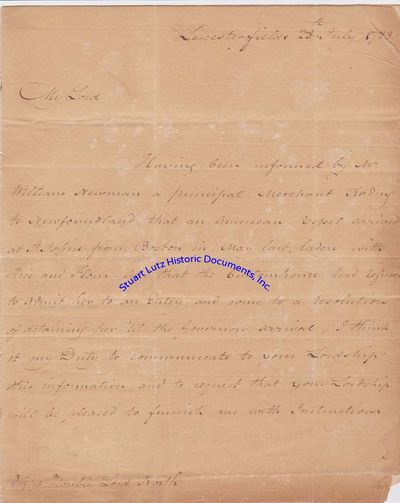 Leicesterfields 28th July 1783
My Lord
Having been informed by Mr
William Newman a principal Merchant trading
to Newfoundland that an American Vessel arrived
at St Johns from Boston in May last, laden with
Rice and Flour that the Customhouse had refused
to admit her to an Entry, and come to a resolution
of detaining her 'till the Governors arrival; I think
it my Duty to communicate to your Lordship
this information and to request that your Lordship
will be pleased to furnish me with Instructions
Right Honble Lord North
Stuart Lutz Historic Documents, Inc.